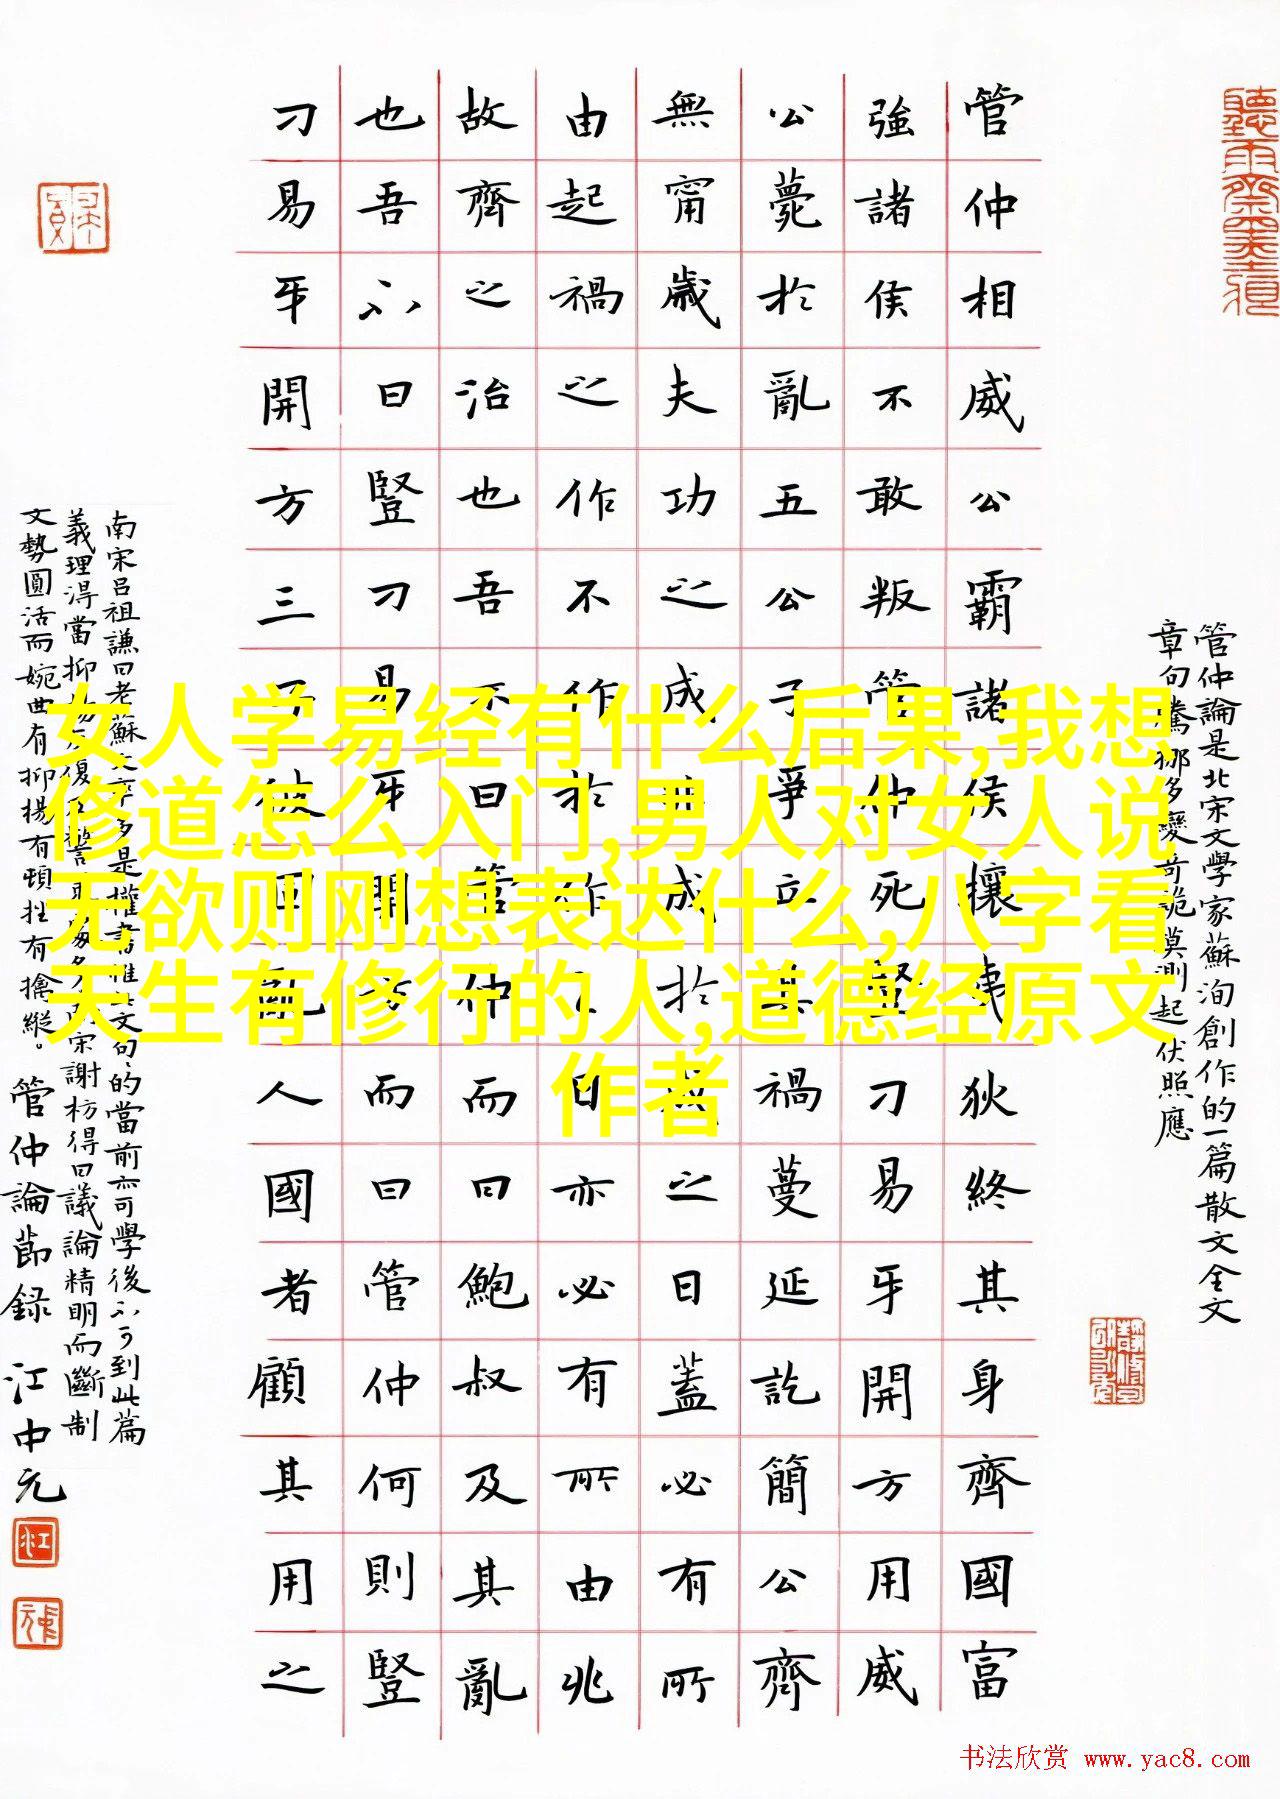 女人学易经有什么后果,我想
修道怎么入门,男人对女人说
无欲则刚想表达什么,八字看
天生有修行的人,道德经原文
作者
管仲論是北宋文學家蘇洵創作的一篇散文全文
章句騰挪多變奇詭莫測起伏照應
管仲相威公霸諸侯攘夷狄終其身齊國富
強諸侯不敢叛管仲死豎刁易牙開方用威
公薨於亂五公子爭立其禍蔓延訖簡公齊
無甯歲夫功之成非成於成之日蓋必有所
由起禍之作不作於作之日亦必有所由兆
故齊之治也吾不曰管仲而曰鮑叔及其亂
也吾不曰豎刁易牙開方而曰管仲何則豎
刁易牙開方三子彼固亂人國者顧其用之
南宋呂祖謙曰老蘇文字多是權書惟此文句句的當前亦可學後不可到此篇
義理淂當抑揚反復及警策處多南宋謝枋得曰議論精明而斷制
文勢圓活而婉曲有抑揚有頓挫有擒縱。管仲論節録 江中元
书法欣赏 www.yac8.com